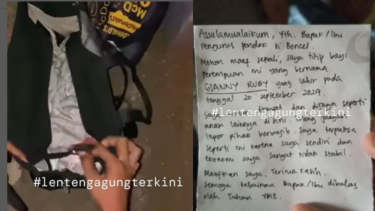 McD
#lentengagungterkini
Assalamualaikum, Yth. Bapak/Ibu
Pengurus pondok Si Boncel
Mohon maaf sebelumnya, saya titip bayi
Perempuan ini yang bernama
GIANNY RUBY yang lahir pada
tanggal 20 september 2024.
dirawat dan dijaga seperti
anak lainnya disini.
lapor pihak berwajib. Saya terpaksa
seperti ini karena saya sendiri dan
ekonomi saya sangat tidak stabil.
Maafkan saya. Terima kasih,
Semoga kebaikan Bapak/Ibu dibalas
oleh Tuhan YME.
#lentengagungterkini